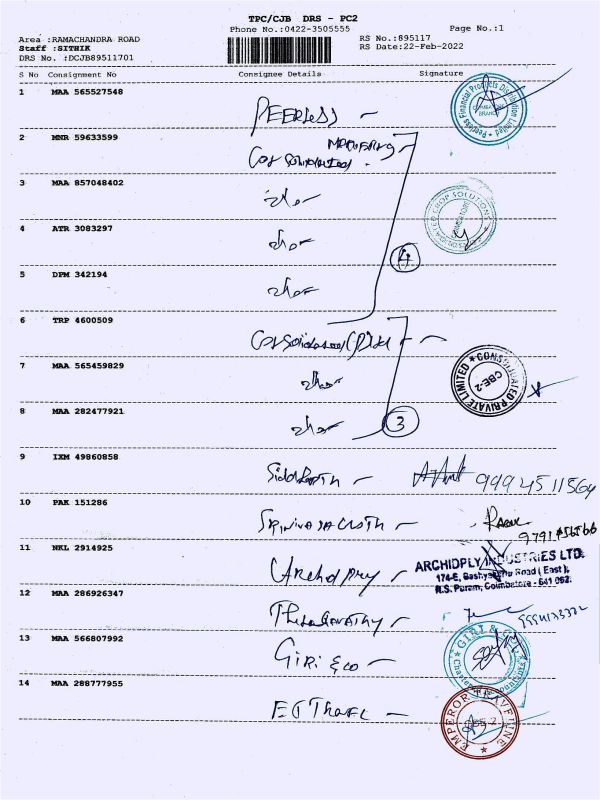 TPC/CJB DRS - PC2
Phone No.:0422-3505555
Page No.:1
Area :RAMACHANDRA ROAD
Staff :SITHIK
DRS No. :DCJB89511701
RS No.:895117
RS Date:22-Feb-2022
S No Consignment No Consignee Details Signature
1 MAA 565527548
PEERLESS
Peerless Financial Products Distribution Limited
COIMBATORE BRANCH
2 MNR 59633599
Consolidated
3 MAA 857048402
CROP SOLUTIONS
4 ATR 3083297
4
5 DPM 342194
6 TRP 4600509
Consolidated (P) Ltd
7 MAA 565459829
CONSOLIDATED PRIVATE LIMITED
CBE-2
8 MAA 282477921
3
9 IXM 49860858
Siddharth
9994511564
10 PAK 151286
SRINIVASA CLOTH
11 NKL 2914925
Archidply
ARCHIDPLY INDUSTRIES LTD.
174-E, Bashyakarlu Road (East),
R.S. Puram, Coimbatore - 641 002.
12 MAA 286926347
13 MAA 566807992
GIRI & CO
GIRI & CO
Chartered Accountants
14 MAA 288777955
ET Travel
EMPEROR TRAVELINE